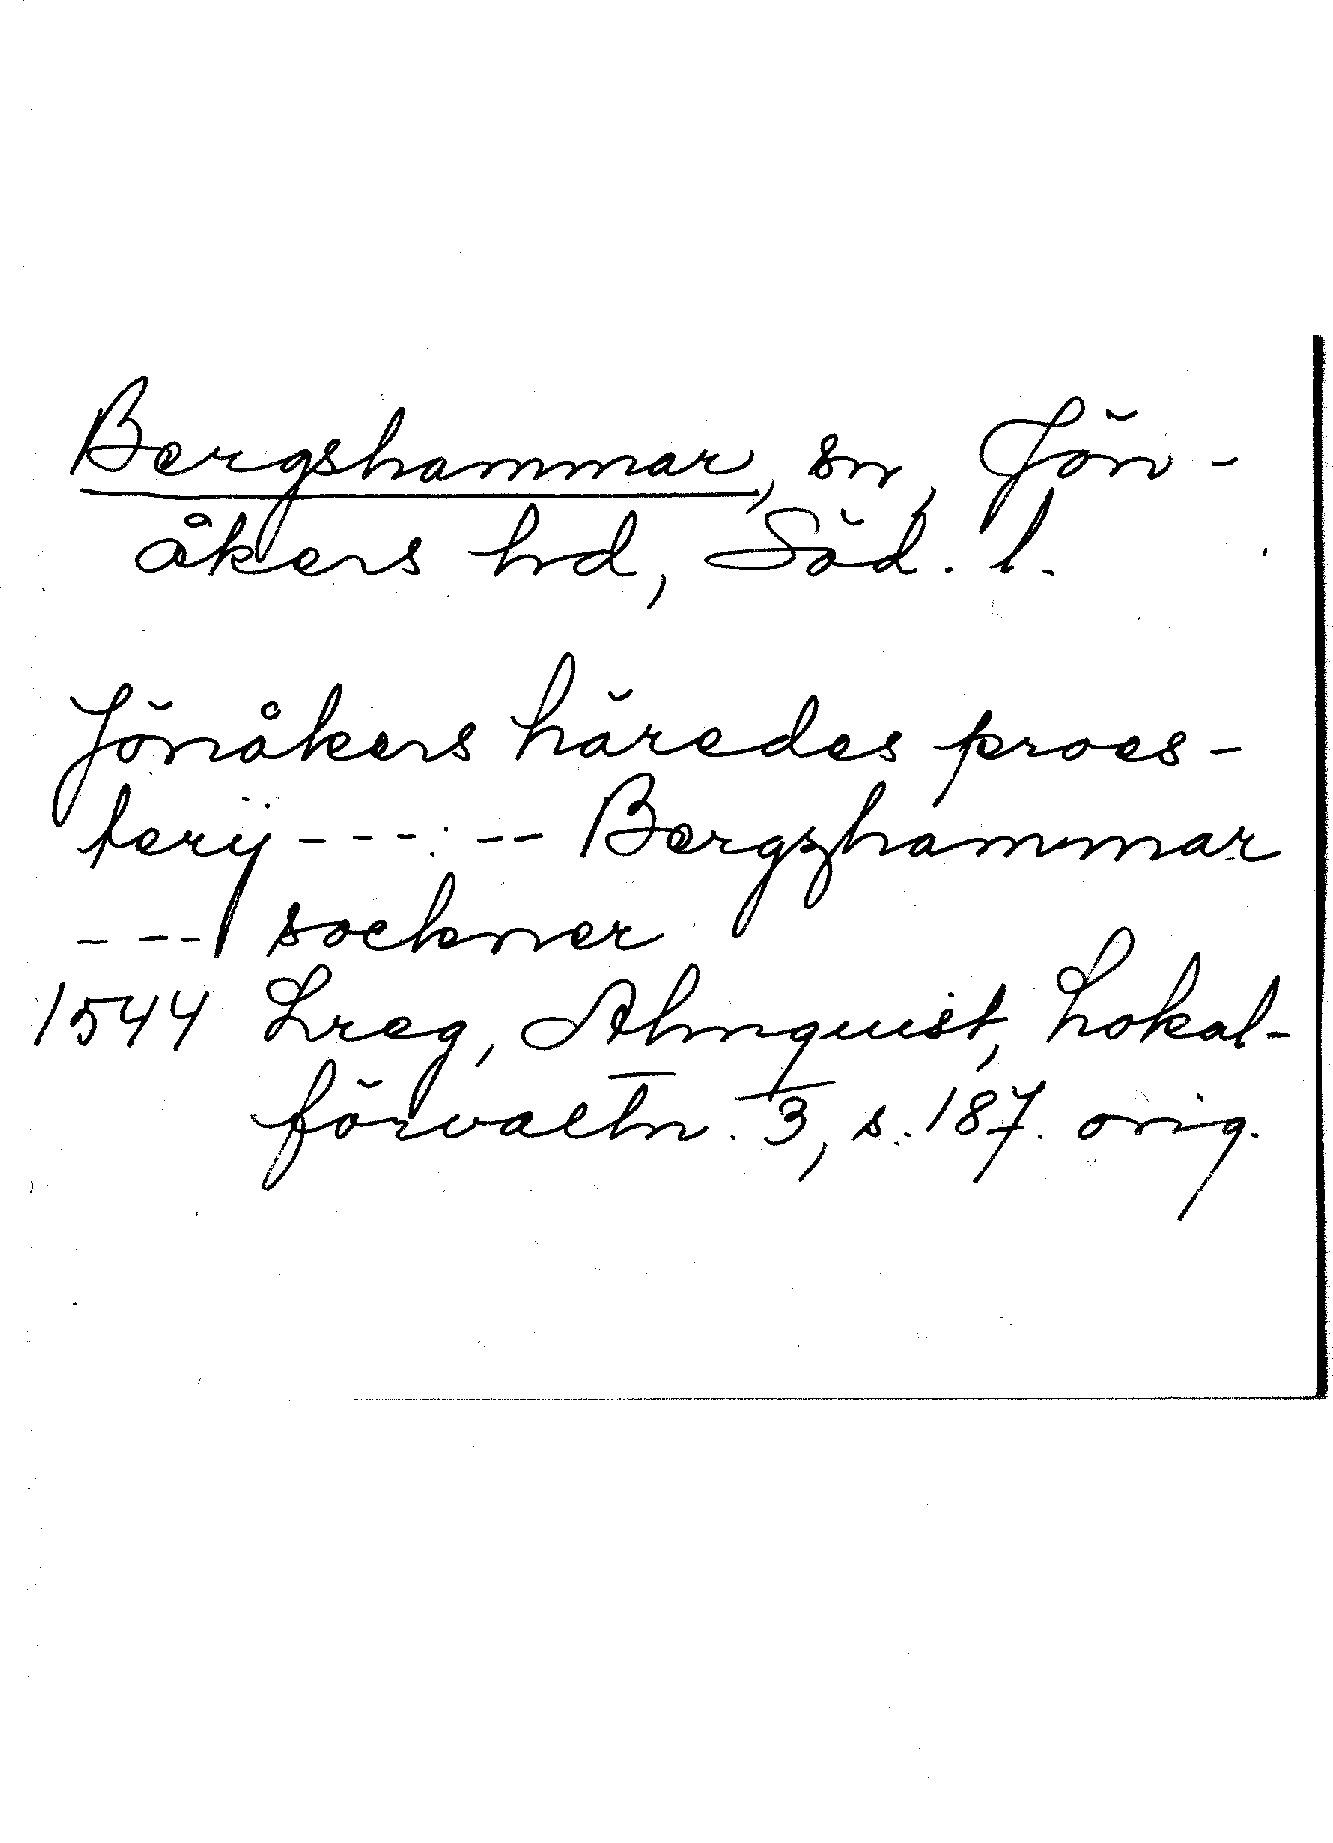 Bergshammar, sn, Jön-
åkers hd, Söd. l.
Jönåkers häredes proes-
terij - - - - - Bergzhammar
- - - sockner
1544 Lreg, Almquist, Lokal-
förvaltn. 3, s. 187. orig.